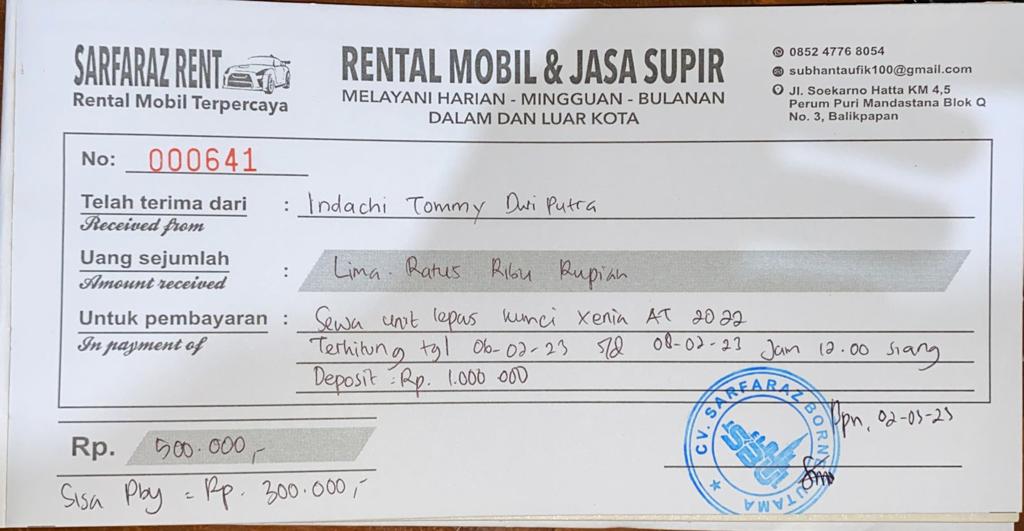 SARFARAZ RENT
Rental Mobil Terpercaya
RENTAL MOBIL & JASA SUPIR
MELAYANI HARIAN - MINGGUAN - BULANAN
DALAM DAN LUAR KOTA
0852 4776 8054
subhantaufik100@gmail.com
Jl. Soekarno Hatta KM 4,5
Perum Puri Mandastana Blok Q
No. 3, Balikpapan
No: 000641
Telah terima dari : Indachi Tommy Dwi Putra
Received from
Uang sejumlah : Lima Ratus Ribu Rupiah
Amount received
Untuk pembayaran : Sewa unit lepas kunci Xenia AT 2022
In payment of
Terhitung tgl 06-02-23 s/d 08-02-23 Jam 12.00 siang
Deposit : Rp. 1.000.000
Rp. 500.000,-
Sisa Pby = Rp. 300.000,-
Bpn, 02-03-23
CV. SARFARAZ BORNEO UTAMA